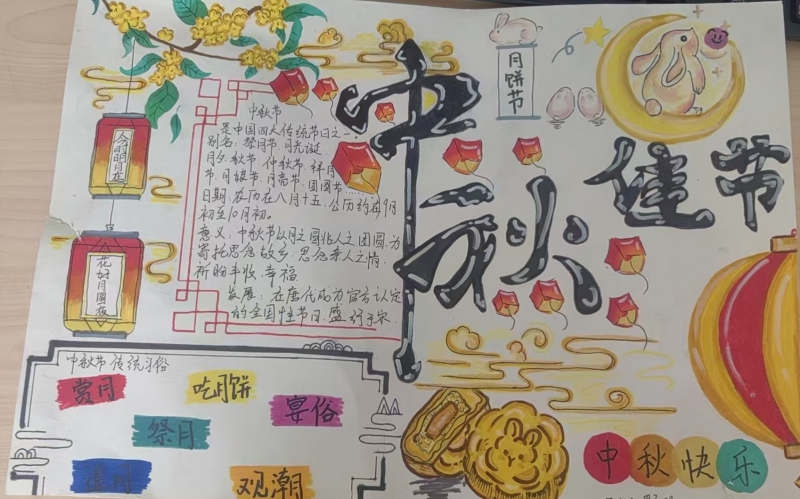 中秋佳节
月饼节
今时明月在
花好月圆夜
中秋节
是中国四大传统节日之一
别名:祭月节、月光诞
月夕、秋节、仲秋节、拜月
节、月娘节、月亮节、团圆节……
日期:农历在八月十五,公历约每9月
初至10月初。
意义:中秋节以月之圆兆人之团圆,为
寄托思念故乡,思念亲人之情,
祈盼丰收、幸福
发展:在唐代成为官方认定
的全国性节日,盛行于宋
中秋节传统习俗
赏月
吃月饼
宴俗
祭月
观潮
中秋快乐